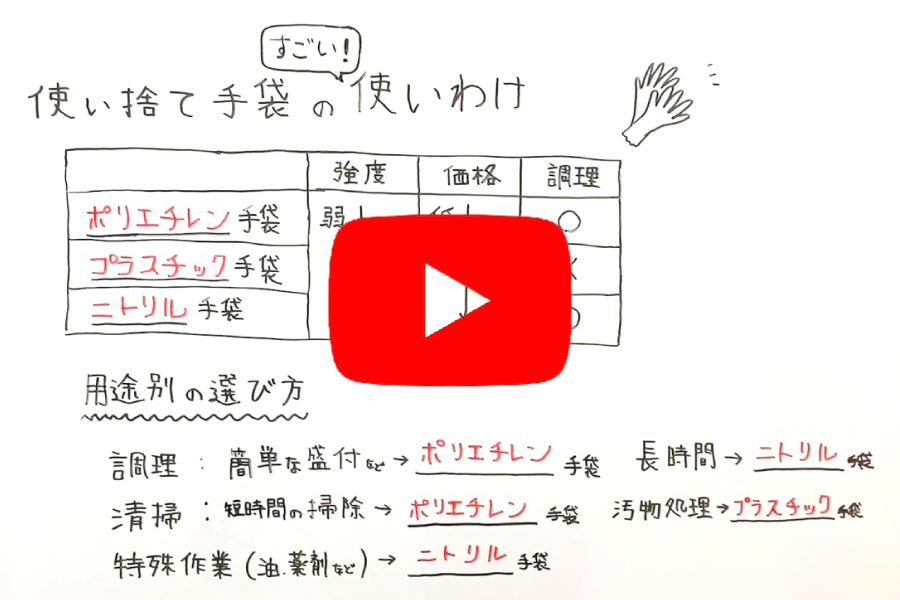 すごい！
使い捨て手袋の使いわけ
強度 価格 調理
ポリエチレン手袋 弱 ○
プラスチック手袋
ニトリル手袋
用途別の選び方
調理：簡単な盛付など→ポリエチレン手袋 長時間→ニトリル手袋
清掃：短時間の掃除→ポリエチレン手袋 汚物処理→プラスチック手袋
特殊作業（油、薬剤など）→ニトリル手袋